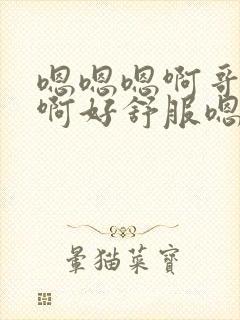 嗯嗯嗯啊哥
啊好舒服嗯
晕猫菜宝